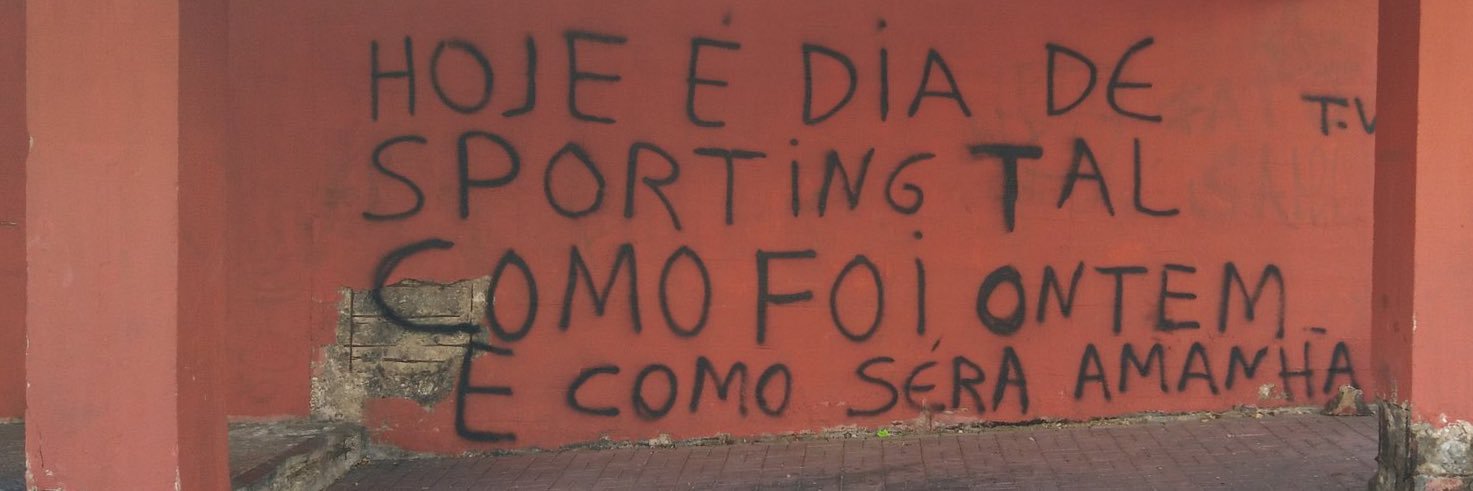 HOJE É DIA DE
SPORTING TAL
COMO FOI ONTEM
E COMO SÉRA AMANHÃ
T.V